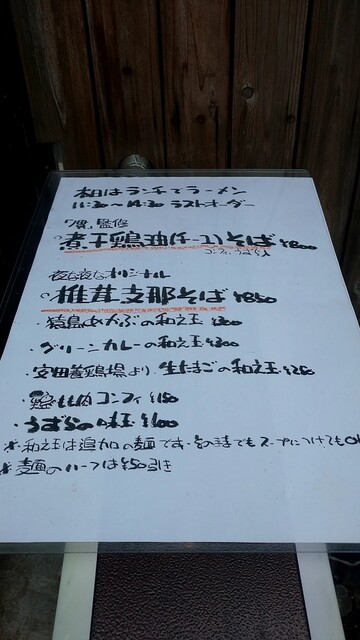 本日はランチでラーメン
11:30〜14:30 ラストオーダー
監修
○煮干鶏油(チーユ)そば ¥800
コンフィ、うずら入
オリジナル
○椎茸支那そば ¥850
・めかぶの和え玉 ¥300
・グリーンカレーの和え玉 ¥300
・安田養鶏場より、生たまごの和え玉 ¥250
・鶏もも肉コンフィ ¥150
・うずらの味玉 ¥100
※和え玉は追加の麺です。そのままでもスープにつけてもOK
※麺のハーフは¥50引き